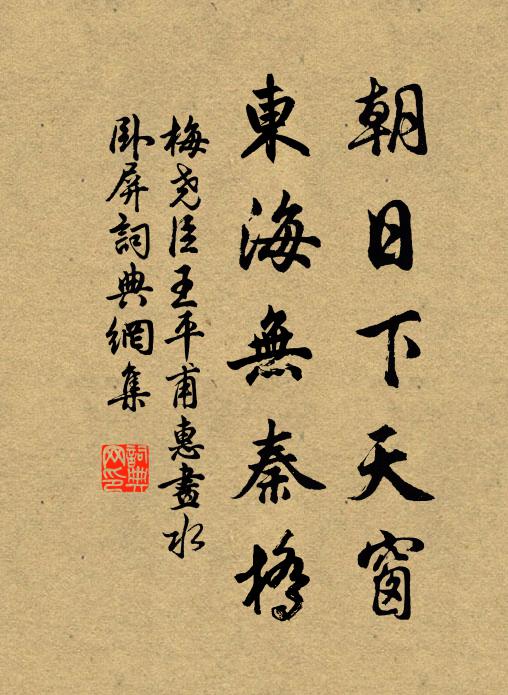 朝日下天窗
東海無秦橋
梅尧臣王平甫惠畫水
卧屏詞典網集
詞典
网印